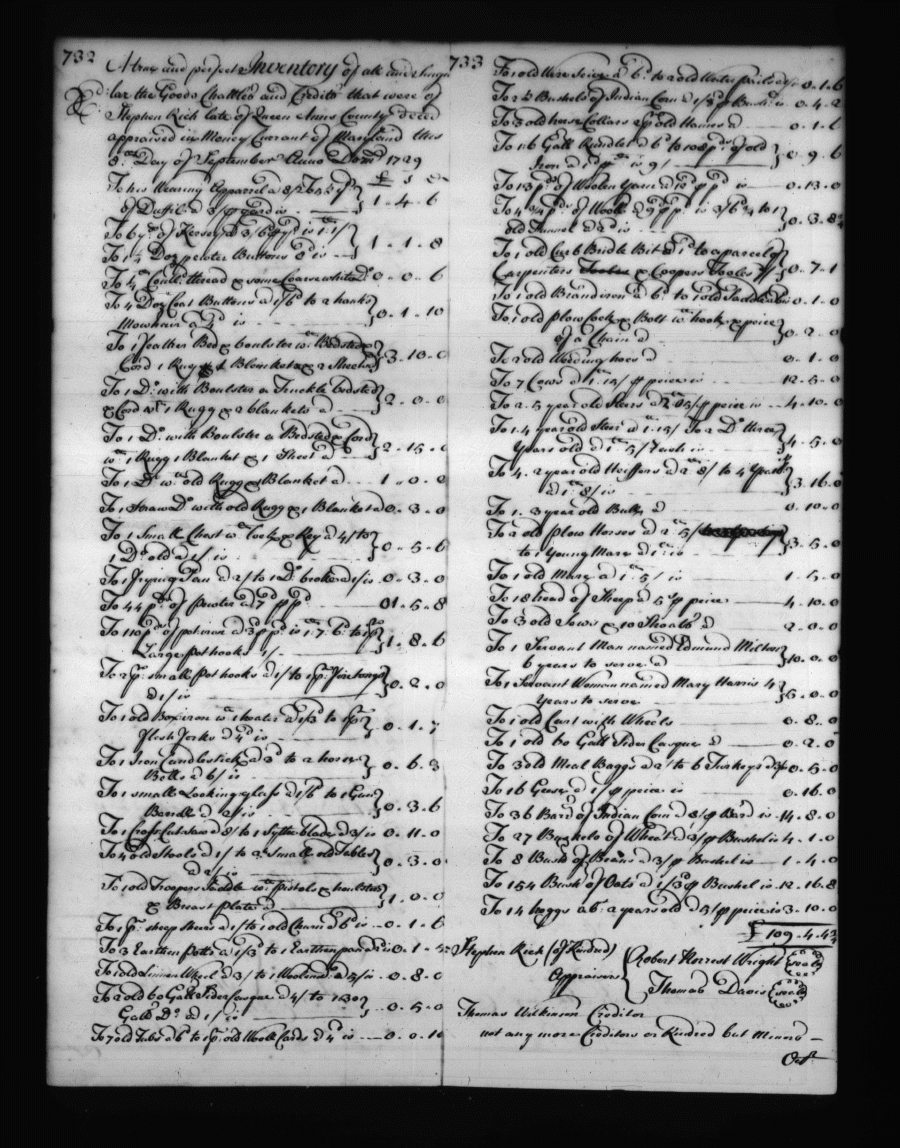 732
A true and perfect Inventory of all and Singu
lar the Goods Chattles and Credits that were of
Stephen Rich late of Queen Anns County deced
appraised in Money Currant of Maryland this
Day of September Anno Dom 1729
To his Wearing Apparrel a
of Duffil a 3/ p yard is 1 - 4 - 6
To 6 yds of Kersey a 3/6 p yd is 1..1/
To 1 1/2 Doz pewter Buttons 8d is 1 - 1 - 8
thread & some Coarse white Do 0 - 0 - 6
To 4 Doz Coat Buttons a 1/6 to 2 hanks
Mowhair a 4d is 0 - 1 - 10
To 1 feather Bed & boulster wth Bedsted
Cord 1 Rugg & 1 Blanket & 2 Sheets 3 - 10 - 0
To 1 Do with Boulster a Truckle bedsted
& Cord wth 1 Rugg & 2 blankets a 2 - 0 - 0
To 1 Do with Boulster a Bedsted & Cord
wth 1 Rugg 1 Blanket & 1 Sheet a 2 - 15 - 0
To 1 Do wth old Rugg & Blanket a 1 - 0 - 0
To 1 Straw Do with old Rugg & 1 Blanket a 0 - 3 - 0
To 1 Small Chest wth Lock & Key a 4/ to
1 Do old a 1/ is 0 - 5 - 6
To 1 frying Pan a 2/ to 1 Do broke a 1/ is 0 - 3 - 0
To 44 pds of Pewter a 7d p pd 01 - 5 - 8
To 110 pds of pot iron a 3d p pd is 1..7..6 to 1 pr
Large pot hooks 1/ 1 - 8 - 6
To 2 pr small pot hooks a 1/ to 1 pr fire tongs
a 1/ is 0 - 2 - 0
To 1 old Box iron wth heater a 1/3 to 1 pr
flesh forks a 4d is 0 - 1 - 7
To 1 Iron Candlestick a 3d to 2 horse
Bells a 6/ is 0 - 6 - 3
To 1 small Looking glass a 1/6 to 1 Gun
Barrell a 2/ is 0 - 3 - 6
To 1 Cross Cut Saw a 8/ to 1 Sythe blade a 3/ is 0 - 11 - 0
To 4 old Stools a 1/ to 2 small old Tables
a 2/ is 0 - 3 - 0
To 1 old Troopers Saddle wth pistols & houlsters
& Breast plate a 1 - 0 - 0
To 1 pr sheep shears a 1/ to 1 old Churn a 6d is 0 - 1 - 6
To 3 Earthen Potts a 1/3 to 1 Earthen pan 0 - 1 - 5
To 1 old Linnen Wheel a 3/ to 1 Woolend a 5/ is 0 - 8 - 0
To 2 old 60 Gall Sider Casque a 4/ to 1 30
Gall Do a 1/ is 0 - 5 - 0
To 7 old Tubs a 6d to 1 pr old Wooll Cards a 4d is 0 - 0 - 10
733
To 1 old Wire Seive a 6d to 2 old Water pails 0 - 1 - 6
To 2 1/2 Bushels of Indian Corn a 1/8 p Bush is 0 - 4 - 2
To 3 old horse Collars 2 pr old Hames a 0 - 1 - 6
To 1 16 Gall Rundlet a 6d to 108 pds of old
Iron a 1d p pd is 9/ 0 - 9 - 6
To 13 pds of Woolen Yarn a 12d p pd is 0 - 13 - 0
To 4 3/4 pds of Wooll a 9d p pd is 3/6 3/4 to 1
old Funnel a 2d is 0 - 3 - 8 3/4
To 1 old Curb Bridle Bit a 1d to a parcel of
Carpenters Tooles & Coopers Tooles 7/ 0 - 7 - 1
To 1 old Brandiron a 6d to 1 old Saddle 0 - 1 - 0
To 1 old plow Lock & Bolt wth hook & peice
of a Chain a 0 - 2 - 0
To 2 old Weeding hoes a 0 - 1 - 0
To 7 Cows a 1..15/ p peice is 12 - 5 - 0
To 2 .. 5 year old Steers a 2..5/ p peice is 4 - 10 - 0
To 1 .. 4 year old Steer a 1..15/ To 2 Do three
Years old a 1..5/ Each is 4 - 5 - 0
To 4 .. 2 year old Heiffers a 2.. 8/ to 4 Year
a 1.. 8/ is 3 .. 16 .. 0
To 1 .. 3 year old Bull a 0 - 10 - 0
To 2 old plow Horses a 2..5/
to 1 Young Mare a 1.. is 3 - 5 - 0
To 1 old Mare a 1..5/ is 1 - 5 - 0
To 18 head of Sheep a 5/ p peice 4 - 10 - 0
To 3 old Sows & 10 Shoats a 2 - 0 - 0
To 1 Servant Man named Edmund Milton
6 years to serve a 10 - 0 - 0
To 1 Servant Woman named Mary Harris 4
Years to serve 6 - 0 - 0
To 1 old Cart with Wheels 0 - 8 - 0
To 1 old 60 Gall Sider Casque a 0 - 2 - 0
To 3 old Meal Baggs a 2/ to 6 Turkeys a 0 - 5 - 0
To 16 Geese a 1/ p peice is 0 - 16 - 0
To 36 Barrd of Indian Corn a 8/ p Barrd is 14 - 8 - 0
To 27 Bushels of Wheat a 3/ p Bushel is 4 - 1 - 0
To 8 Bushs of Beans a 3/ p Bushel is 1 - 4 - 0
To 154 Bush of Oats a 1/8 p Bushel is 12 - 16 - 8
To 14 hoggs abt 2 years old a 5/ p peice is 3 - 10 - 0
£ 109 - 4 - 4 3/4
Stephen Rich (of Kindred)
Appraisers
Robert Norrest Wright (seale)
Thomas Davis (seale)
Thomas Wilkinson Creditor
not any more Creditors or Kindred but Minors
Oct